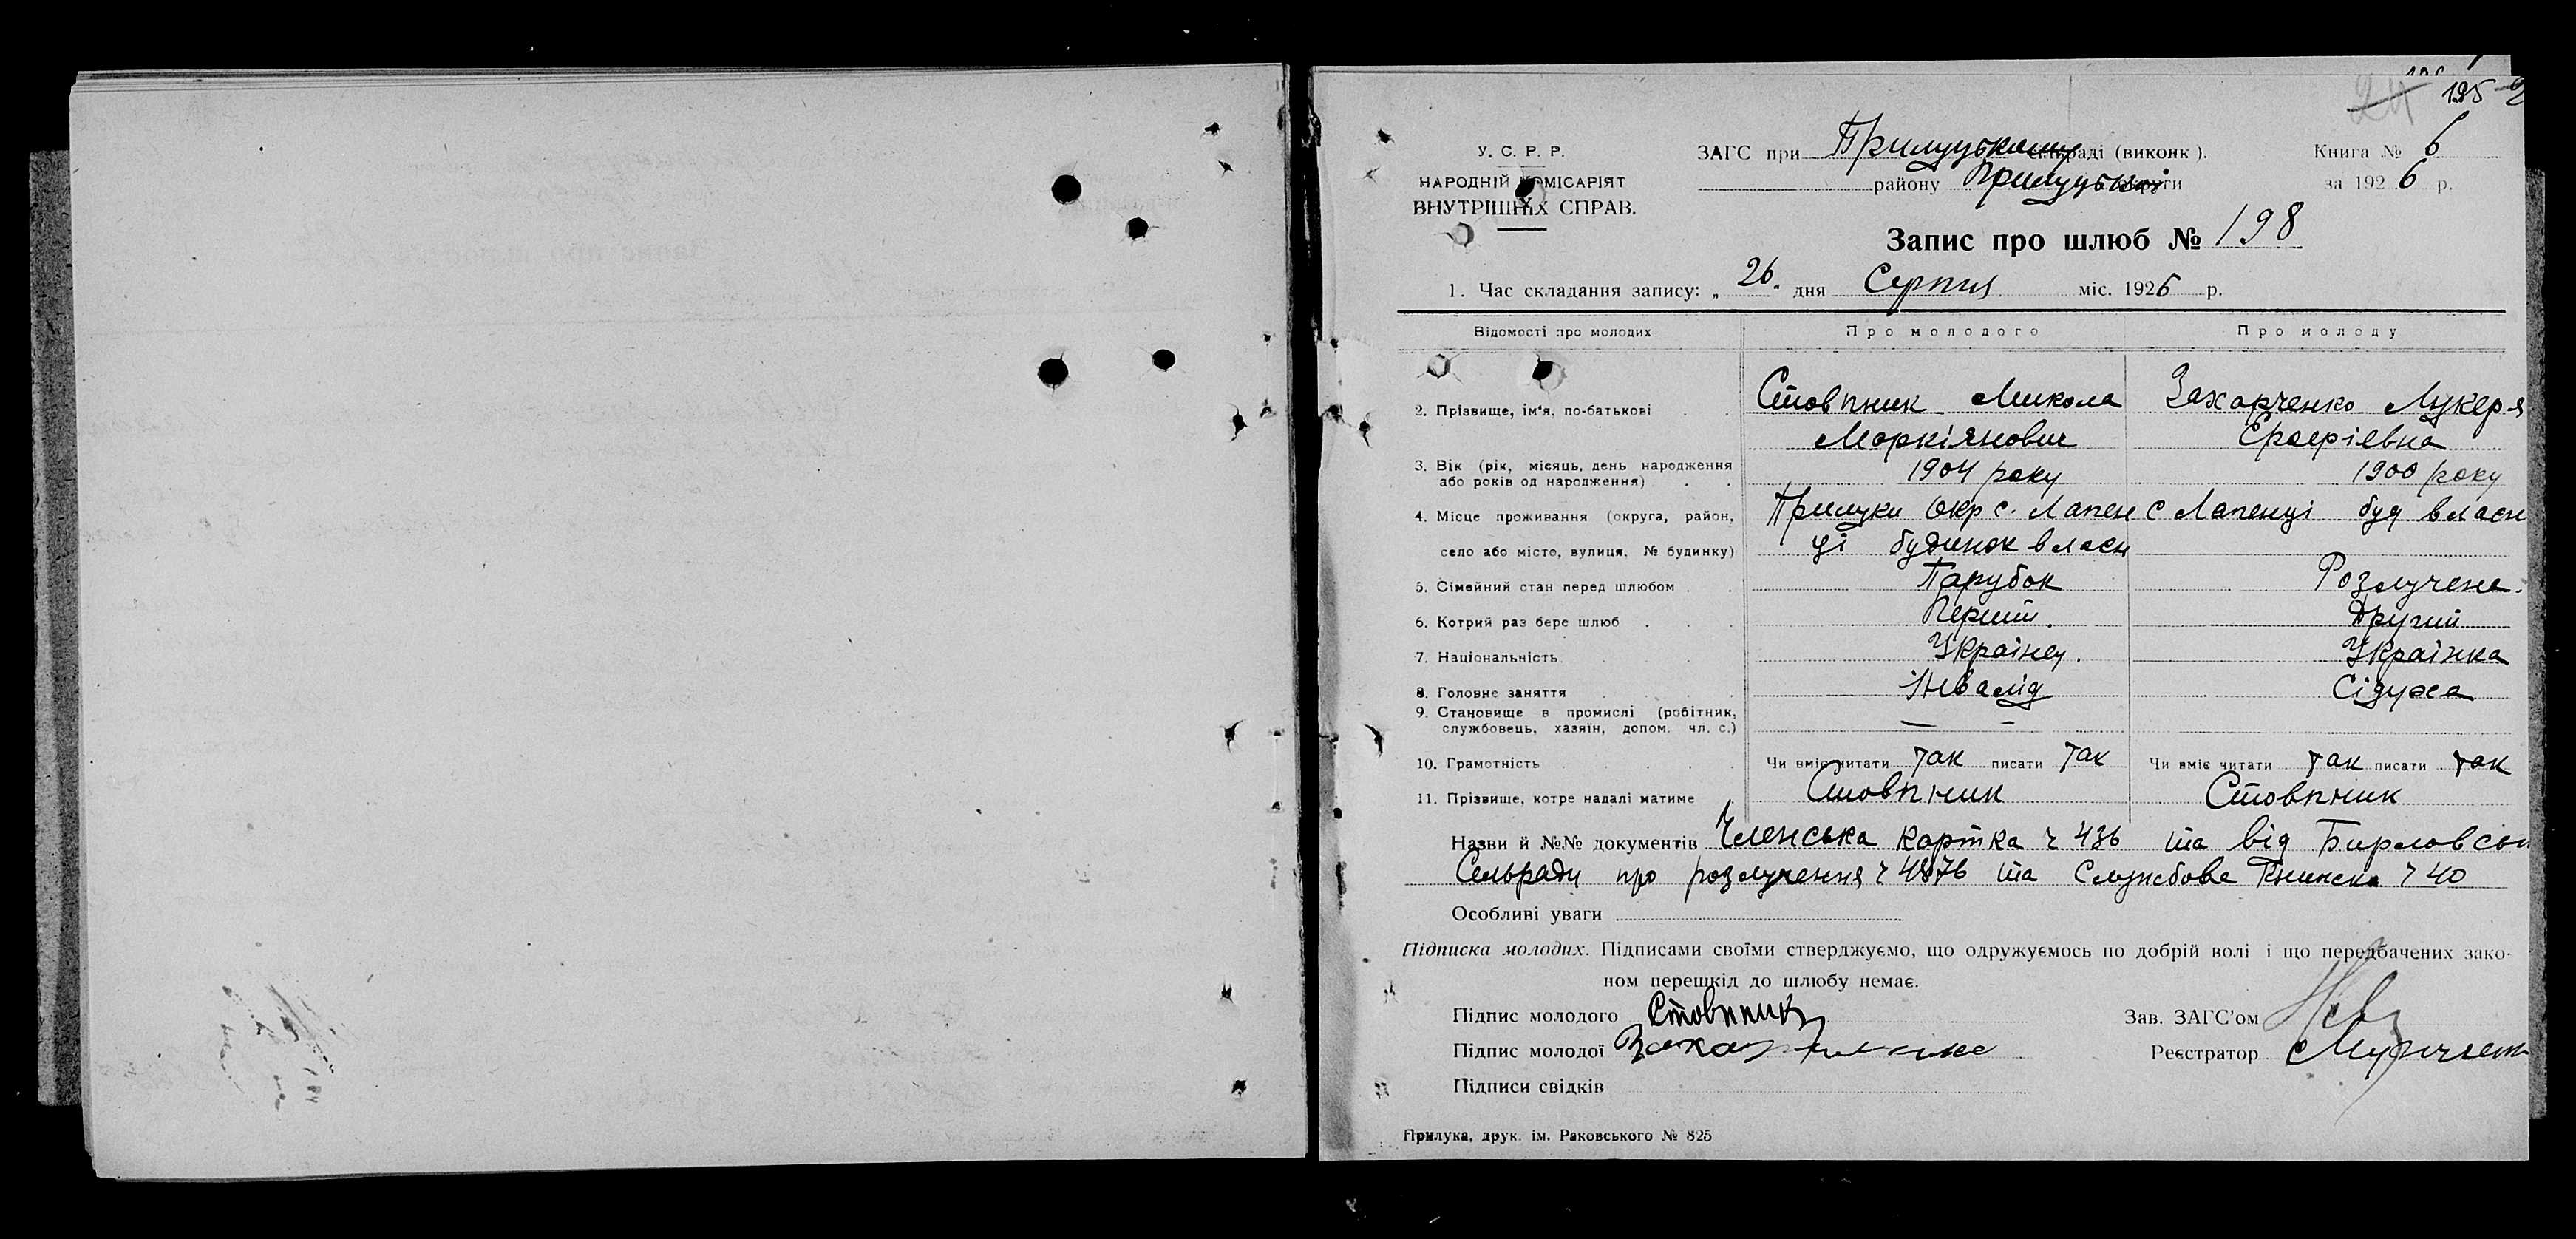 24 195
У. С. Р. Р.
НАРОДНІЙ КОМІСАРІЯТ
ВНУТРІШНІХ СПРАВ.
ЗАГС при Прилуцькому раді (виконк).
району Прилуцької
Книга № 6
за 1926 р.
Запис про шлюб № 198
1. Час складання запису: „26" дня Серпня міс. 1926 р.
Відомості про молодих Про молодого Про молоду
2. Прізвище, ім'я, по-батькові Стовпник Микола Захарченко Лукеря
Маркіянович
3. Вік (рік, місяць, день народження 1904 року 1900 року
або років од народження)
4. Місце проживання (округа, район, Прилуки Окр с. Лапен с Лапенці буд власн
село або місто, вулиця, № будинку) ці будинок власн
5. Сімейний стан перед шлюбом Парубок Розлучена.
6. Котрий раз бере шлюб Перший. Другий
7. Національність Українец. Українка
8. Головне заняття Інвалід
9. Становище в промислі (робітник, — —
службовець, хазяїн, допом. чл. с.)
10. Грамотність Чи вміє читати так писати так Чи вміє читати так писати так
11. Прізвище, котре надалі матиме Стовпник Стовпник
Назви й №№ документів Членська картка ч 436 та від
Сельради про розлучення ч 4876 та Службова Книжка ч 40
Особливі уваги
Підписка молодих. Підписами своїми стверджуємо, що одружуємось по добрій волі і що передбачених зако-
ном перешкід до шлюбу немає.
Підпис молодого Стовпник
Підпис молодої
Підписи свідків
Зав. ЗАГС'ом
Реєстратор
Прилука, друк. ім. Раковського № 825